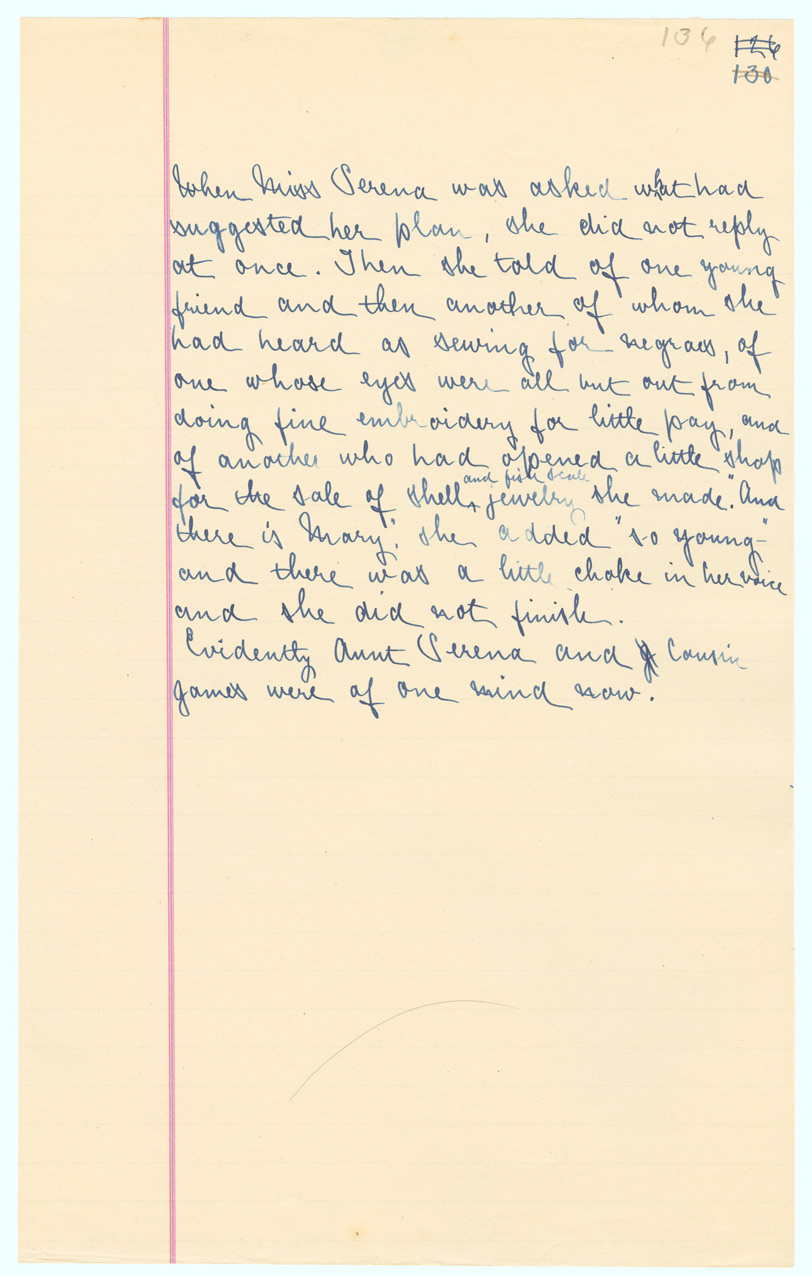 136
126
130
When Miss Serena was asked what had
suggested her plan, she did not reply
at once. Then she told of one young
friend and then another of whom she
had heard as sewing for negroes, of
one whose eyes were all but out from
doing fine embroidery for little pay, and
of another who had opened a little shop
and fish scale
for the sale of shell jewelry she made. "And
there is Mary," she added "so young-"
and there was a little choke in her voice
and she did not finish.
Evidently Aunt Serena and Cousin
James were of one mind now.